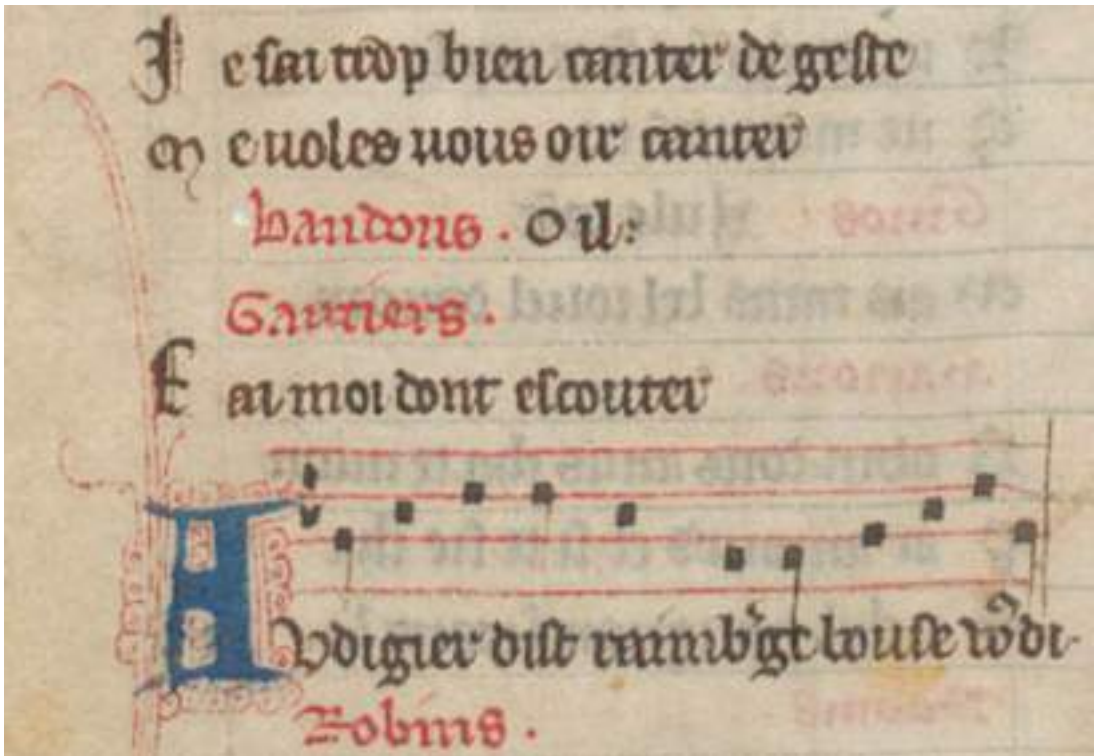 Je sai trop bien canter de geste
Me voles vous oir canter
Baudons. Oil:
Gautiers.
Fai moi dont escouter
Audigier dist raimb'ge bouse vo' di.
Robins.